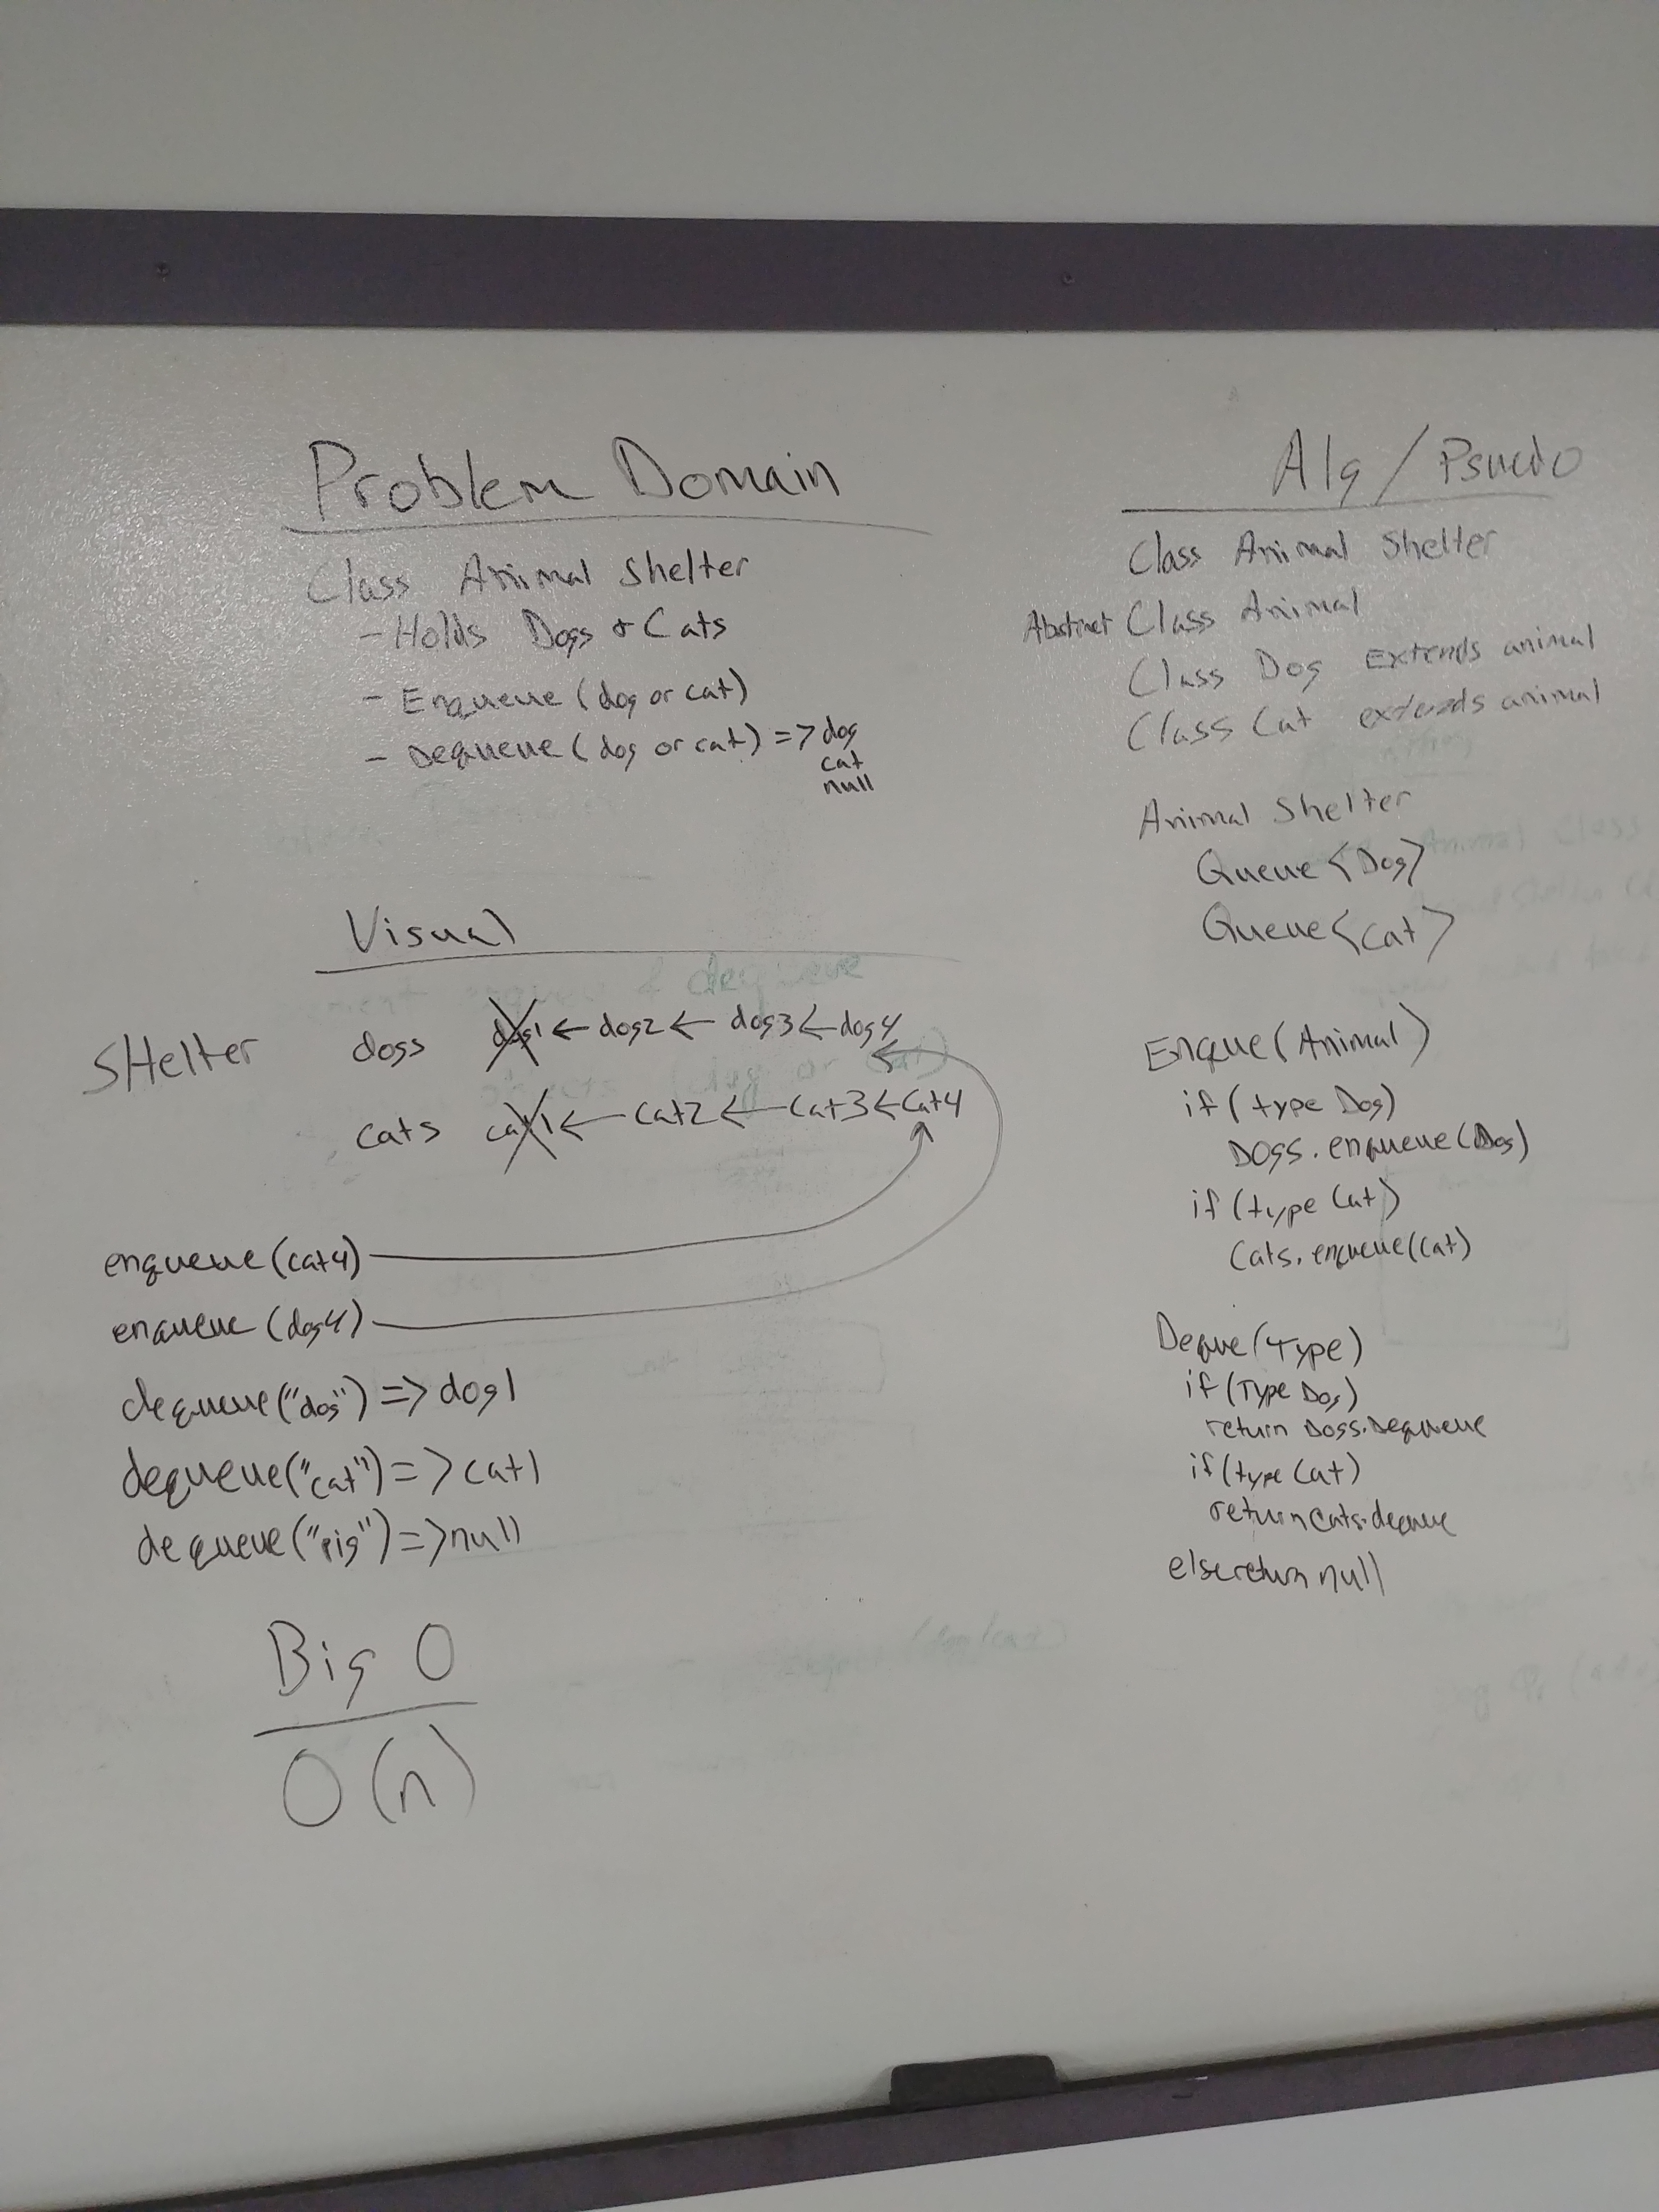 Problem Domain
Class Animal Shelter
- Holds Dogs & Cats
- Enqueue (dog or cat)
- Dequeue (dog or cat) => dog
cat
null
Visual
SHelter
dogs dog1 ← dog2 ← dog3 ← dog4
cats cat1 ← Cat2 ← Cat3 ← Cat4
enqueue (cat4)
enqueue (dog4)
dequeue("dog") => dog1
dequeue("cat") => cat1
dequeue("pig") => null
Big O
O(n)
Alg / Psuedo
Class Animal Shelter
Abstract Class Animal
Class Dog Extends animal
Class Cat extends animal
Animal Shelter
Queue <Dog>
Queue <Cat>
Enque (Animal)
if (type Dog)
DOgs.enqueue(Dog)
if (type Cat)
Cats.enqueue(Cat)
Deque (Type)
if (Type Dog)
return DOgs.Dequeue
if (type Cat)
return Cats.deque
else return null